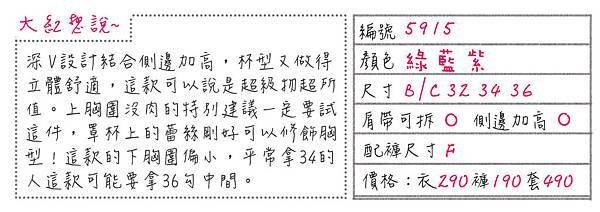 大紅想說~
深V設計結合側邊加高，杯型又做得
立體舒適，這款可以說是超級物超所
值。上胸圍沒肉的特別建議一定要試
這件，罩杯上的蕾絲剛好可以修飾胸
型！這款的下胸圍偏小，平常拿34的
人這款可能要拿36勾中間。
編號 5915
顏色 綠藍紫
尺寸 B/C 32 34 36
肩帶可拆 O 側邊加高 O
配褲尺寸 F
價格：衣290褲190套490